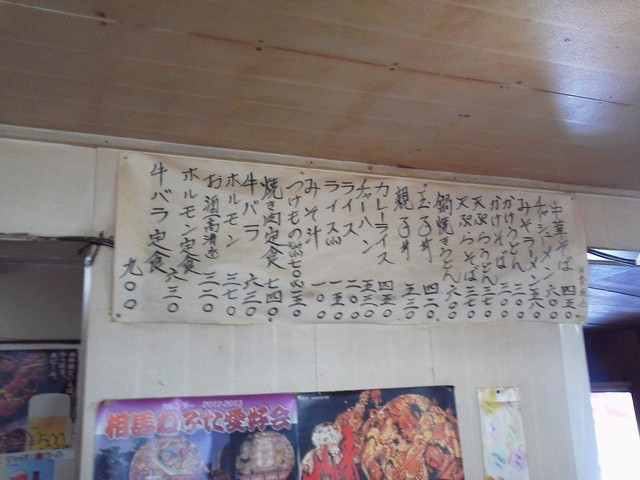 消費税込
中華そば 四五〇
チャシューメン 六〇〇
みそラーメン 五五〇
かけうどん 三二〇
かけそば 三二〇
天ぷらうどん 三七〇
天ぷらそば 三七〇
鍋焼きうどん 六〇〇
玉子丼 四二〇
親子丼 五三〇
カレーライス 四五〇
チャーハン 五三〇
ライス 二〇〇
ライス小 一五〇
みそ汁 一〇〇
つけもの
焼き肉定食 七四〇
牛バラ 六三〇
ホルモン 三七〇
お酒(高清水) 三二〇
ホルモン定食 六三〇
牛バラ定食 九〇〇
カレンダー 2012-2013
相馬ねぷた愛好会
¥500